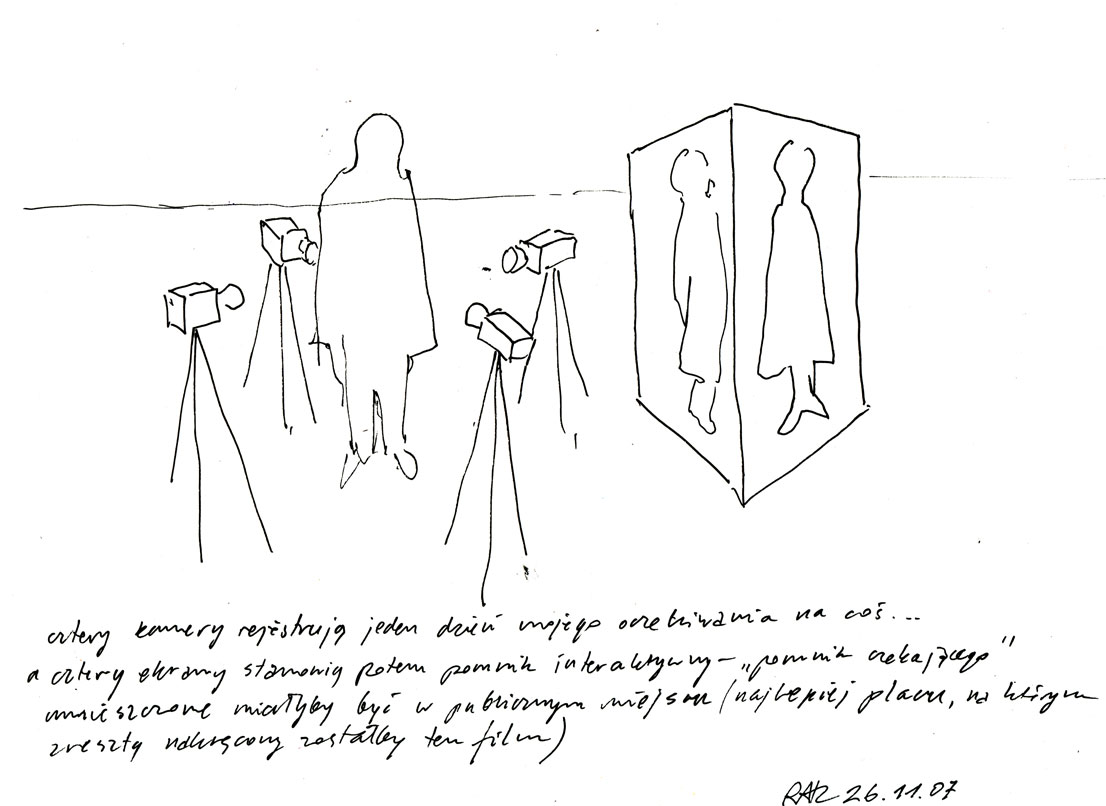 cztery kamery rejestrują jeden dzień mojego oczekiwania na coś...
a cztery ekrany stanowią potem pomnik interaktywny – „pomnik czekającego"
umieszczone miałyby być w publicznym miejscu (najlepiej placu, na którym
zresztą nakręcony zostałby ten film)
26.11.07